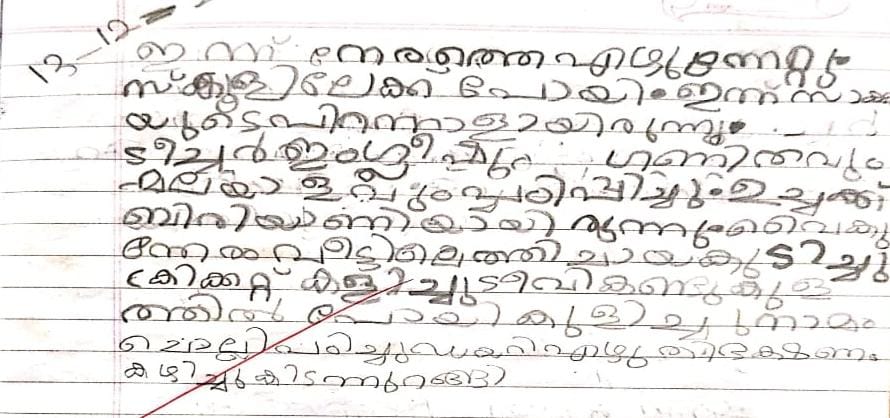 13-12
ഇന്ന് നേരത്തെ എഴുന്നേറ്റു
സ്കൂളിലേക്ക് പോയി. ഇന്ന് സാക
യുടെ പിറന്നാളായിരുന്നു.
ടീച്ചർ ഇംഗ്ലീഷും ഗണിതവും
മലയാളവും പഠിപ്പിച്ചു. ഉച്ചക്ക്
ബിരിയാണിയായിരുന്നു. വൈകു
ന്നേരം വീട്ടിലെത്തി ചായകുടിച്ചു
ക്രിക്കറ്റ് കളിച്ചു ടീവി കണ്ടു കുള
ത്തിൽ പോയി കുളിച്ചു നാമം
ചൊല്ലി പഠിച്ചു ഡയറി എഴുതി ഭക്ഷണം
കഴിച്ചു കിടന്നുറങ്ങി